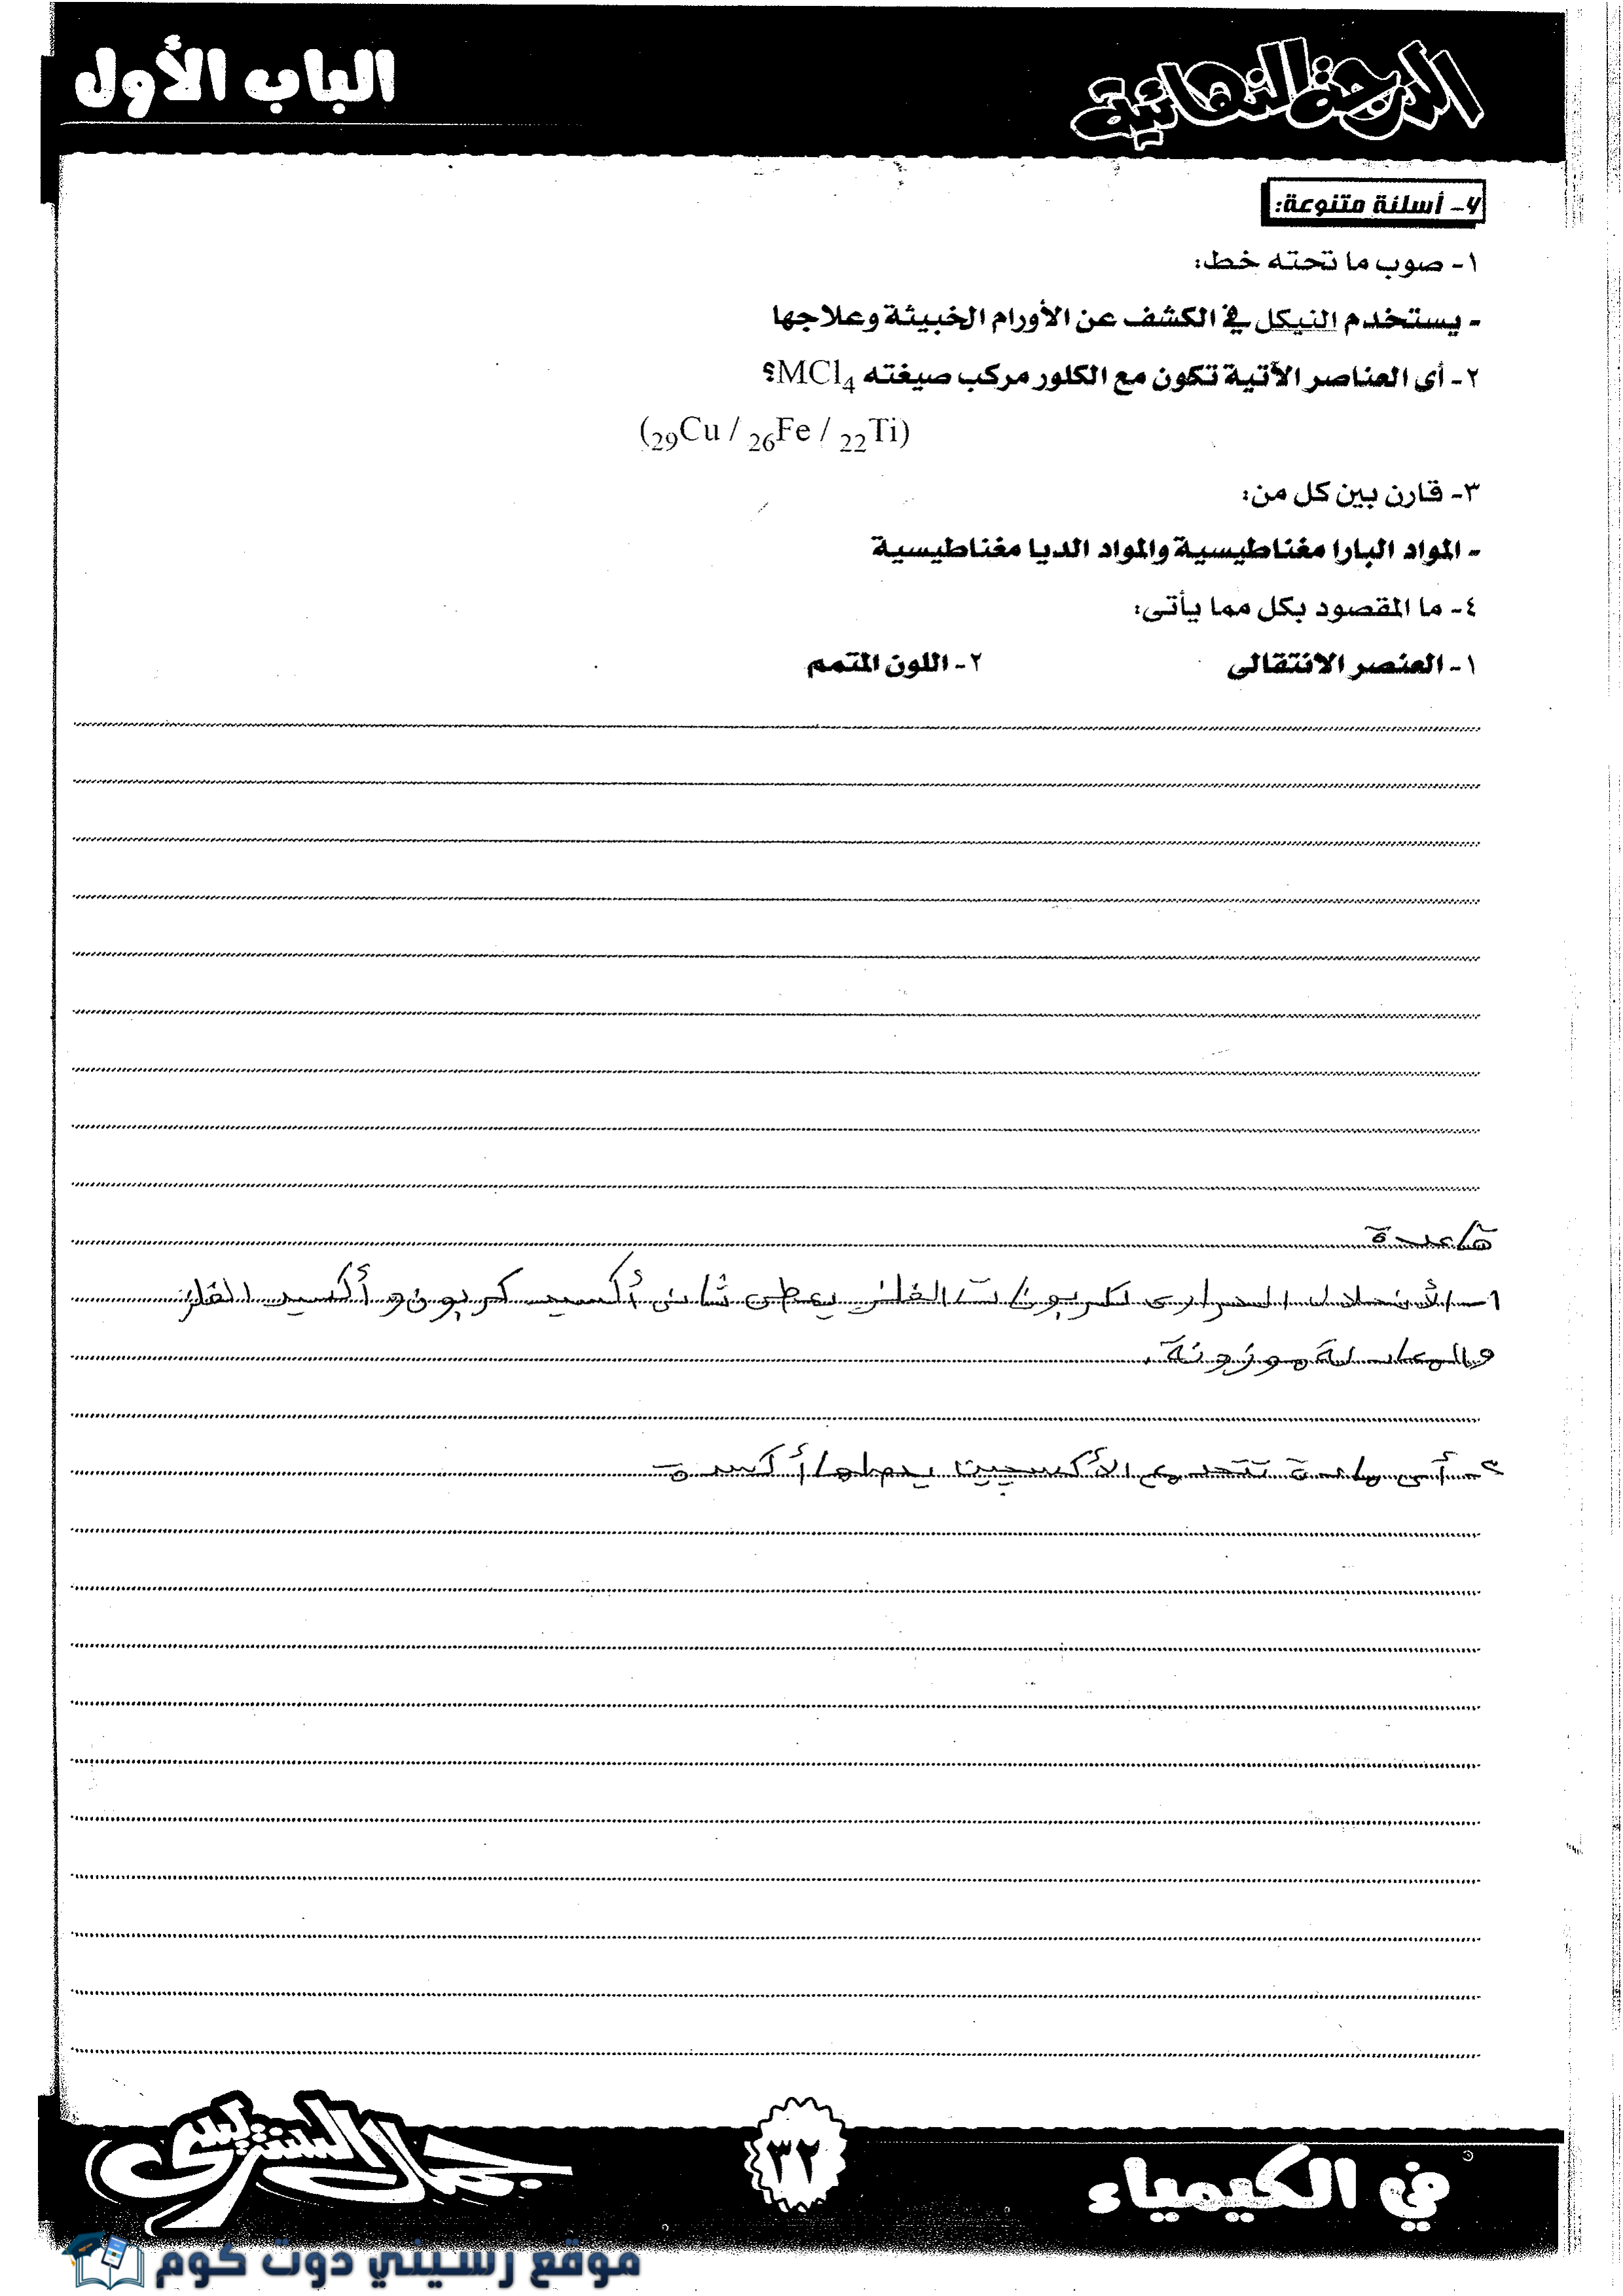 الدرجة النهائية
الباب الأول
٧- أسئلة متنوعة:
١- صوب ما تحته خط:
- يستخدم النيكل في الكشف عن الأورام الخبيثة وعلاجها
٢- أى العناصر الآتية تكون مع الكلور مركب صيغته MCl4؟
(29Cu / 26Fe / 22Ti)
٣- قارن بين كل من:
- المواد البارا مغناطيسية والمواد الديا مغناطيسية
٤- ما المقصود بكل مما يأتى:
١- العنصر الانتقالى ٢- اللون المتمم
قاعدة
١- الأنحلال الحرارى لكربونات الفلز يعطى ثانى أكسيد كربون و أكسيد الفلز
والمعادلة موزونة.
٢- أى مادة تتحد مع الأكسجين يحصلها أكسدة
في الكيمياء
٣٢
جمال السنتريسي
موقع رسيني دوت كوم